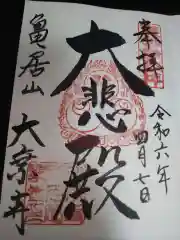 奉拝
令和六年
四月七日
大悲殿
亀居山
大宗寺